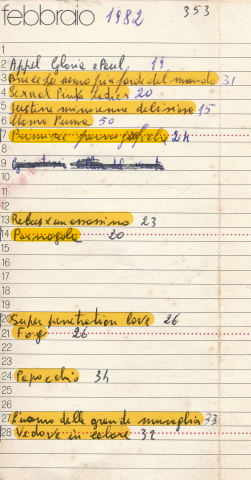 febbraio 1982 353
1
2 Appel Gloria e Paul, 19
3 Braccio uomo più forte del mondo 31
4 Sexual Pink Ladies 20
5 Justine minorenne deliziosa 15
6 Uomo Puma 50
7 24
8
9
10
11
12
13 Rebus x un assassino 23
14 Pornogola 20
15
16
17
18
19
20 Super penetration love 26
21 Fog 26
22
23
24 Papocchio 34
25
26
27 L'uomo della grande muraglia 33
28 Vedove in calore 32